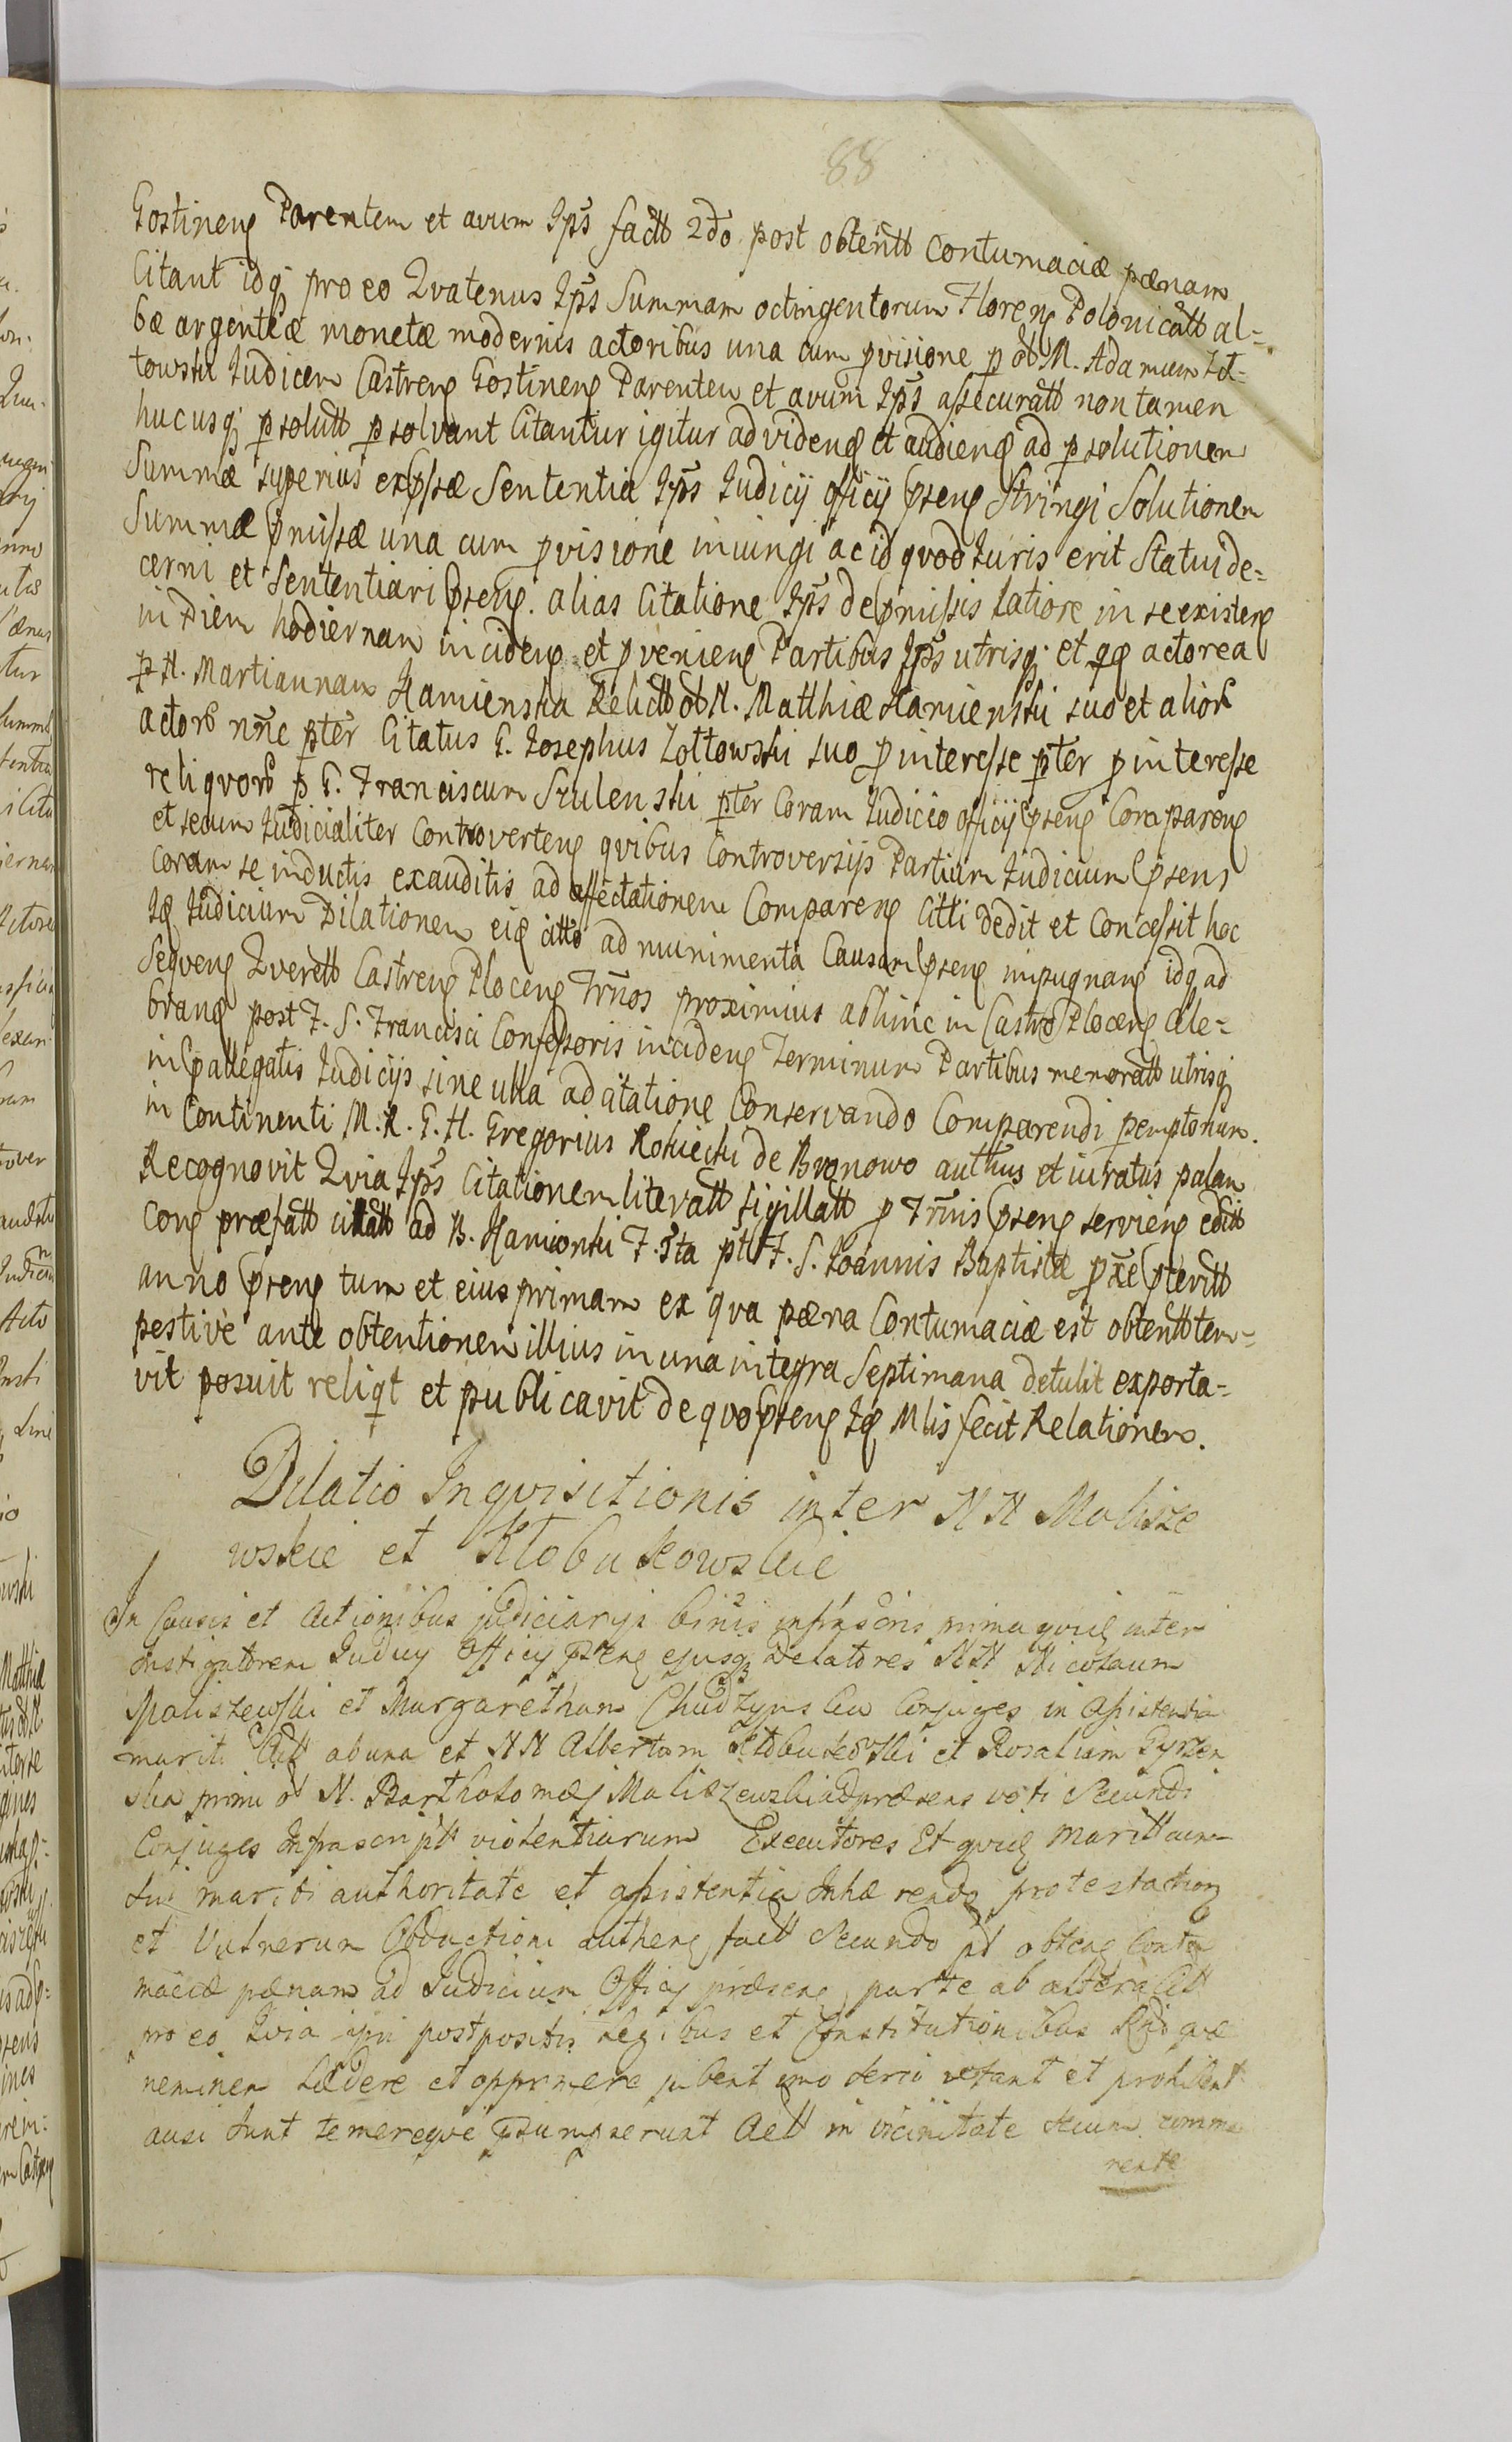 88
Gostineng Parentem et avum Ips factt 2do post obtentt contumaciæ pænam
Citant idq pro eo Qvatenus Ips Summam octingentorum Floreng Polonicatt al=
bæ argenteæ monetæ modernis actoribus una cum pvisione p ob M. Adamum Zot=
towski Judicem Castreng Gostineng Parentem et avum Ips assecuratt non tamen
hucusq psolutt psolvant Citantur igitur ad videng et audieng ad psolutionem
Summæ superius expssæ Sententia Ips Judicij officij pseng Stringi Solutionem
Summæ pmissæ una cum pvisione iniungi ac id qvod Juris erit Statui de=
cerni et Sententiari pseng. alias Citatione Ips de pmissis Latiore in se existeng
in Diem hodiernam incideng et pvenieng Partibus Ips utrisq et qq actorea
p N. Martiannam Kamienska Relictt ob N. Matthiæ Kamienski suo et alior
actorb nne pter Citatus G. Josephus Zottowski suo p interesse pter p interesse
reliqvorb p G. Franciscum Szulenski pter Coram Judicio officij pseng Compareng
et secum Judicialiter Controverteng qvibus Controversijs Partium Judicium psens
coram se inductis exauditis ad affectationem Compareng Citti dedit et Concessit hoc
Jq Judicium Dilationem eiq citto ad munimenta Causam pseng impugnang idq ad
Seqveng Qverett Castreng Ploceng Trnos proximius abhinc in Castro Ploceng Cele=
brang post F. S. Francisci Confessoris incideng Terminum Partibus memoratt utrisq
in pallegatis Judicijs sine ulla adcitatione Conservando Comparendi pemptorium.
in Continenti M. R. G. H. Gregorius Rokicki de Bronowo authus et iuratus palam
Recognovit Qvia Ips Citationem literatt sigillatt p Trnis pseng servieng editt
Cong præfatt citatt ad B. Kamionki F. 5ta ptt F. S. Joannis Baptistæ pxe pteritt
anno pseng tum et eius primam ex qva pæna Contumaciæ est obtentt tem=
pestivè ante obtentionem illius in una integra Septimana detulit exporta=
vit posuit reliqt et publicavit de qvo pseng Jq Mlis fecit Relationem.
Dilatio Inqvisitionis inter NN Malisze
wskie et Kłobukowskie
In Causis et Actionibus judiciarijs binis infrascris prima qvieg inter
Instigatorem Judicij Officij pseng ejusq Delatores NN Nicolaum
Maliszewski et Margaretham Chudzynska Conjuges in assistentia
mariti Citt ab una et NN Albertum Kłobukowski et Rosaliam Gyrzen
ska primi ob N. Bartholomæj Maliszewski ad præsens voti Secundi
Conjuges Infrascriptt violentiarum Executores Et qvieg Marittam
Sui mariti authoritate et assistentia Inhærendo protestationg
et Vulnerum Obductioni autheng factt Secundo pt obteng Contu
maciæ pænam ad Judicium Officij præseng parte ab altera Citt
pro eo Qvia ipsi postpositis Legibus et Constitutionibus Rgni qvæ
neminem Lædere et opprimere jubent imo serio vetant et prohibent
ausi sunt temereqve psumpserunt Actt in vicinitate secum comme
rente